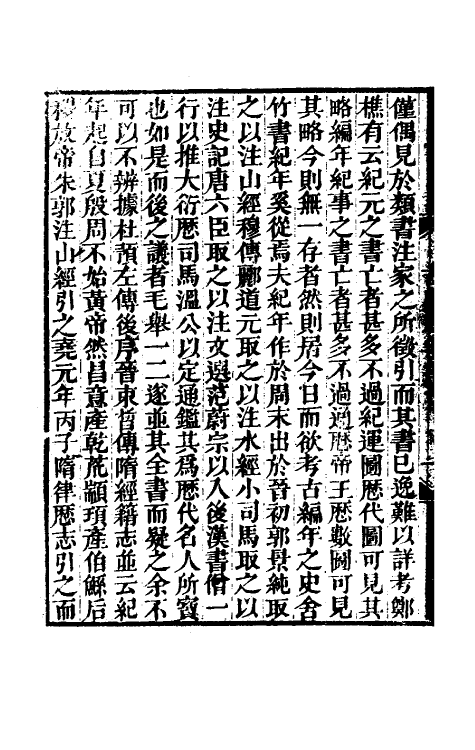 僅偶見於類書注家之所徵引而其書已逸難以詳考鄭
樵有云紀元之書亡者甚多不過紀運圖歷代圖可見其
略編年紀事之書亡者甚多不過通歷帝王歷數圖可見
其略今則無一存者然則居今日而欲考古編年之史舍
竹書紀年奚從焉夫紀年作於周末出於晉初郭景純取
之以注山經穆傳酈道元取之以注水經小司馬取之以
注史記唐六臣取之以注文選范蔚宗以入後漢書僧一
行以推大衍歷司馬溫公以定通鑑其為歷代名人所寶
也如是而後之議者毛舉一二遂並其全書而疑之余不
可以不辨據杜預左傳後序晉束晳傳隋經籍志並云紀
年起自夏殷周不始黃帝然昌意產乾荒顓頊產伯鯀后
稷放帝朱郭注山經引之堯元年丙子隋律歷志引之而